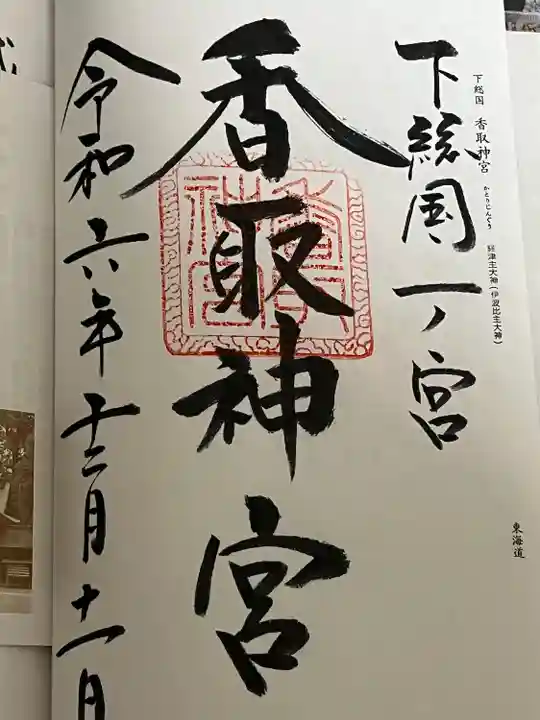 下総国 香取神宮 かとりじんぐう 経津主大神(伊波比主大神)
東海道
下総国一ノ宮
香取神宮
令和六年十二月十一日